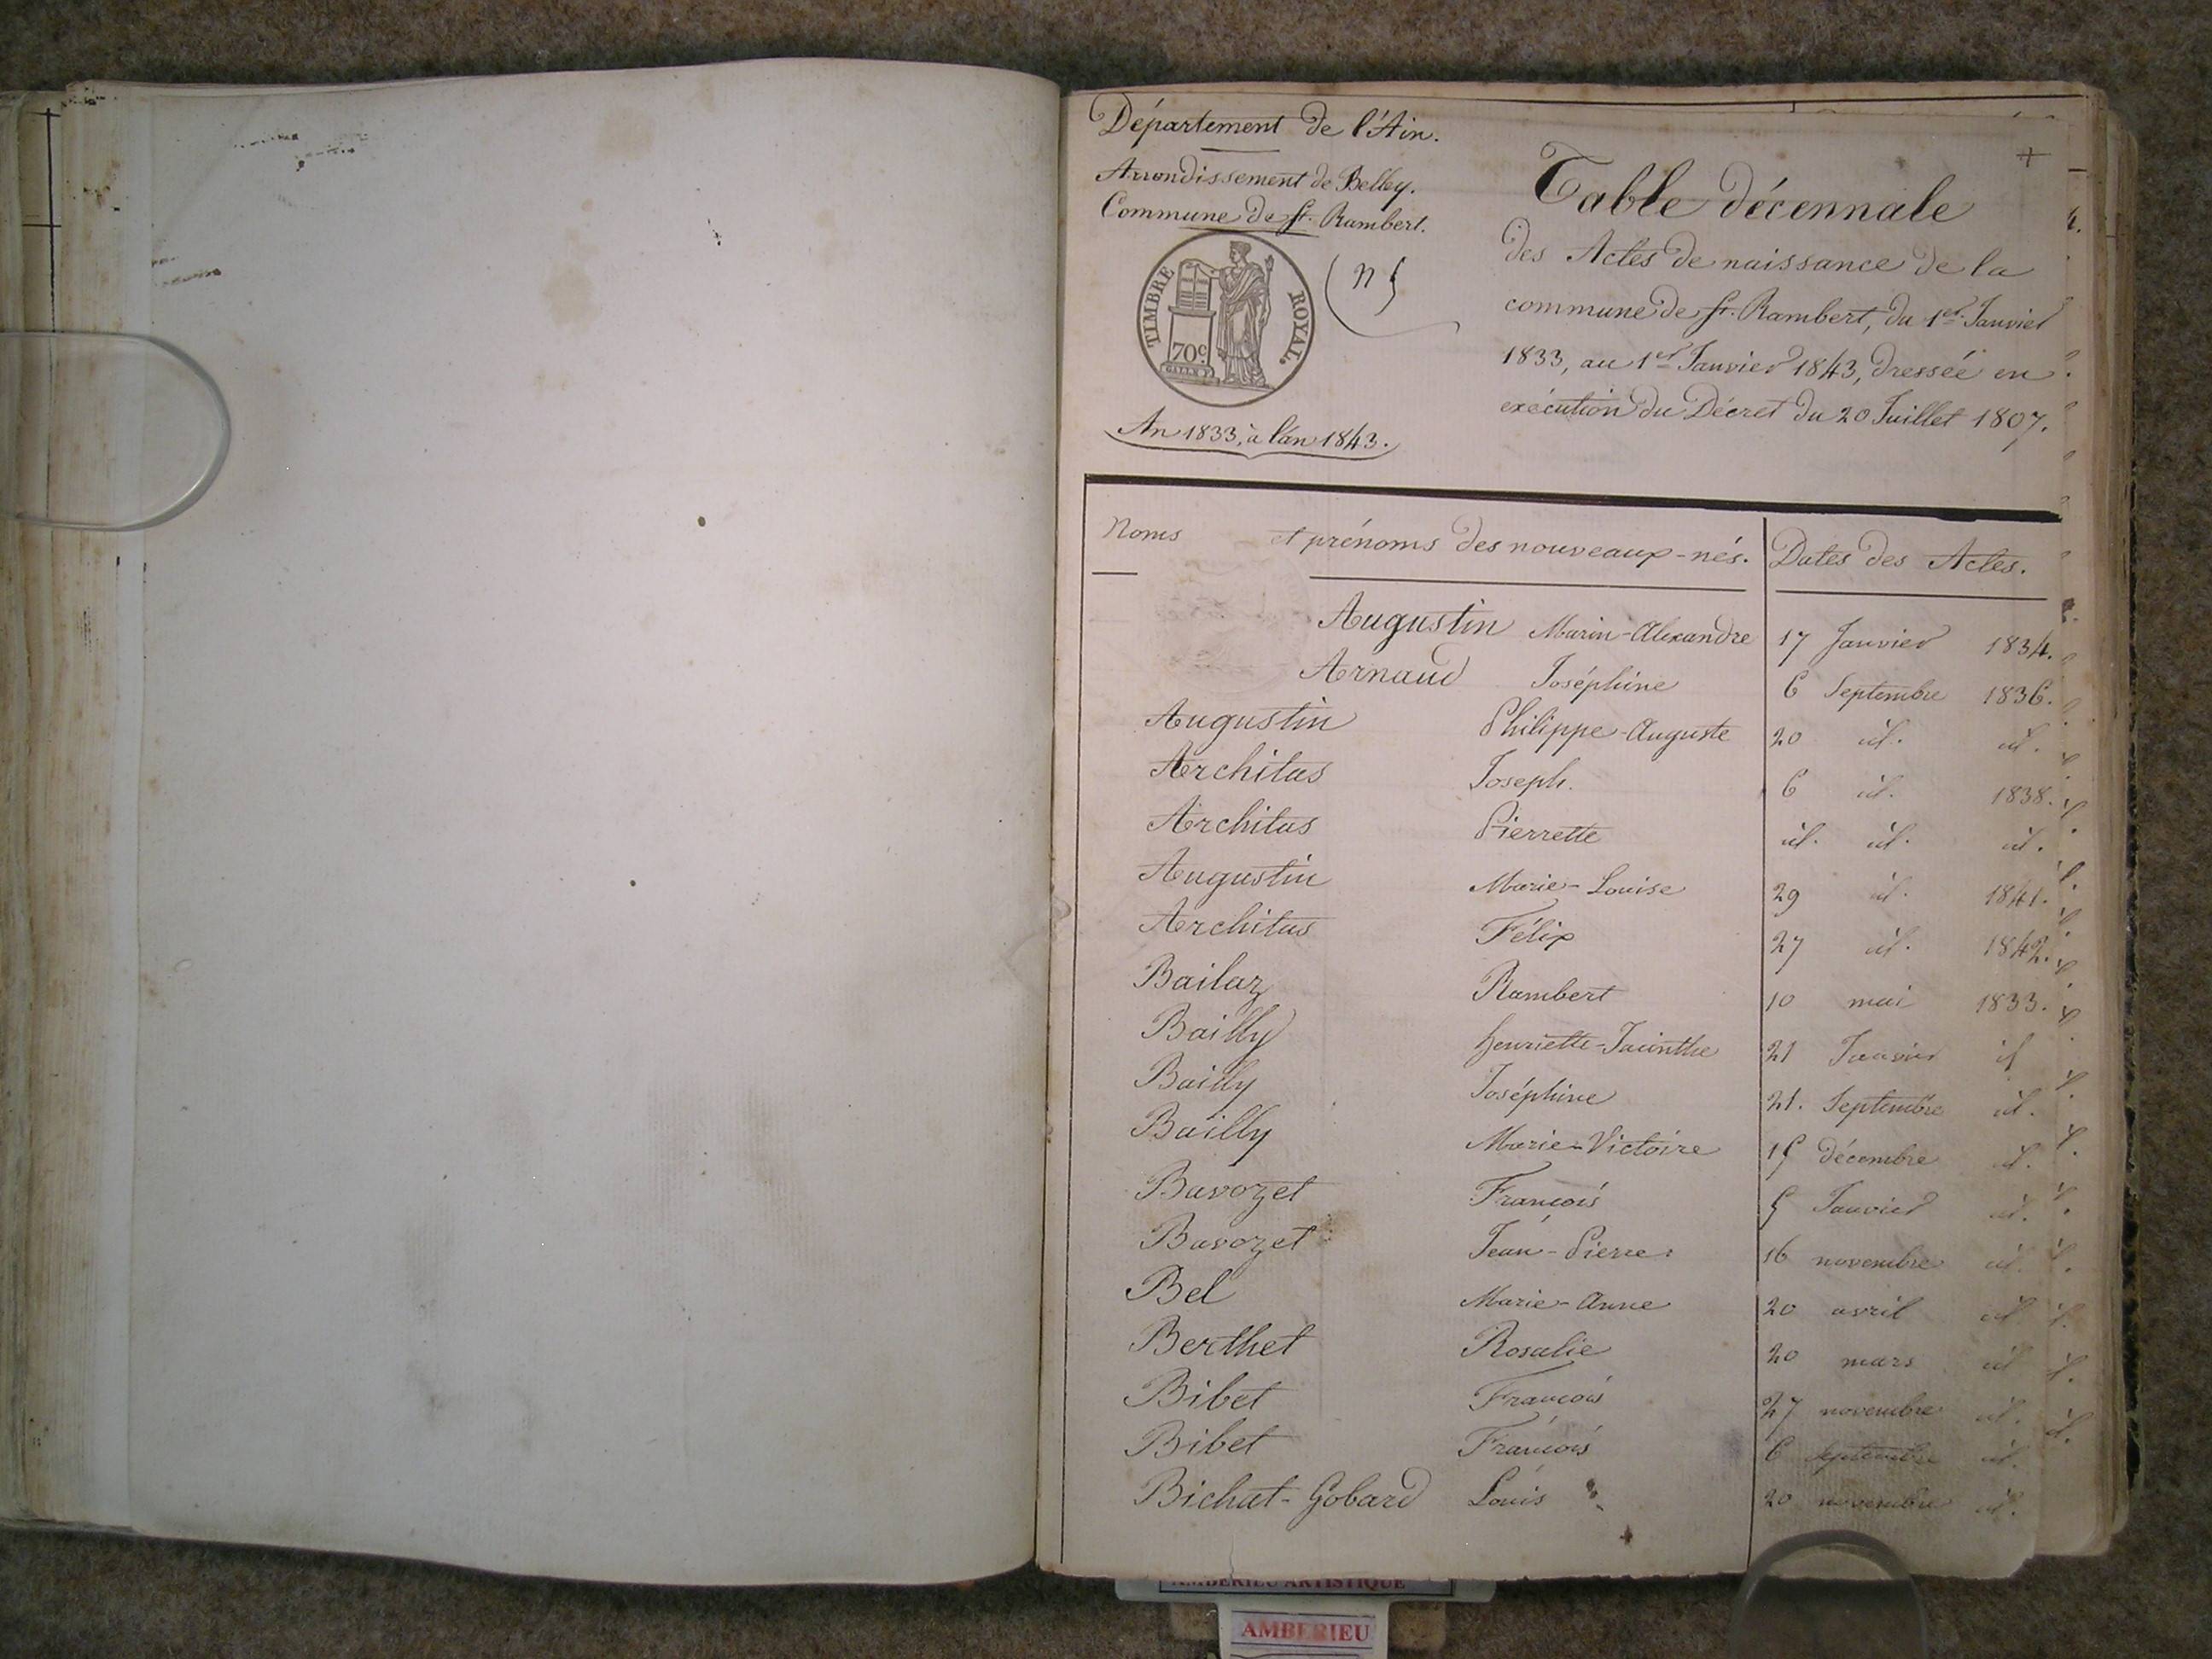 Département de l'Ain.
Arrondissement de Belley.
Commune de St. Rambert.
TIMBRE ROYAL.
70c.
An 1833, à l'an 1843.
Table décennale
des Actes de naissance de la
commune de St. Rambert, du 1er Janvier
1833, au 1er Janvier 1843, dressée en
exécution du Décret du 20 Juillet 1807.
Noms et prénoms des nouveaux-nés. Dates des Actes.
Augustin Marin-Alexandre 17 Janvier 1834.
Arnaud Joséphine 6 Septembre 1836.
Augustin Philippe-Auguste 20 id. id.
Architas Joseph. 6 id. 1838.
Architas Pierrette id. id. id.
Augustin Marie-Louise 29 id. 1841.
Architas Félix 27 id. 1842.
Bailaz Rambert 10 mai 1833.
Bailly henriette-Jacinthe 21 Janvier id
Bailly Joséphine 21. Septembre id.
Bailly Marie-Victoire 15 décembre id.
Bavozet François 5 Janvier id.
Bavozet Jean-Pierre 16 novembre id.
Bel Marie-Anne 20 avril id.
Berthet Rosalie 20 mars id
Bibet François 27 novembre id.
Bibet François 6 Septembre id.
Bichat-Gobard Louis 20 novembre id.
AMBERIEU ARTISTIQUE
AMBERIEU